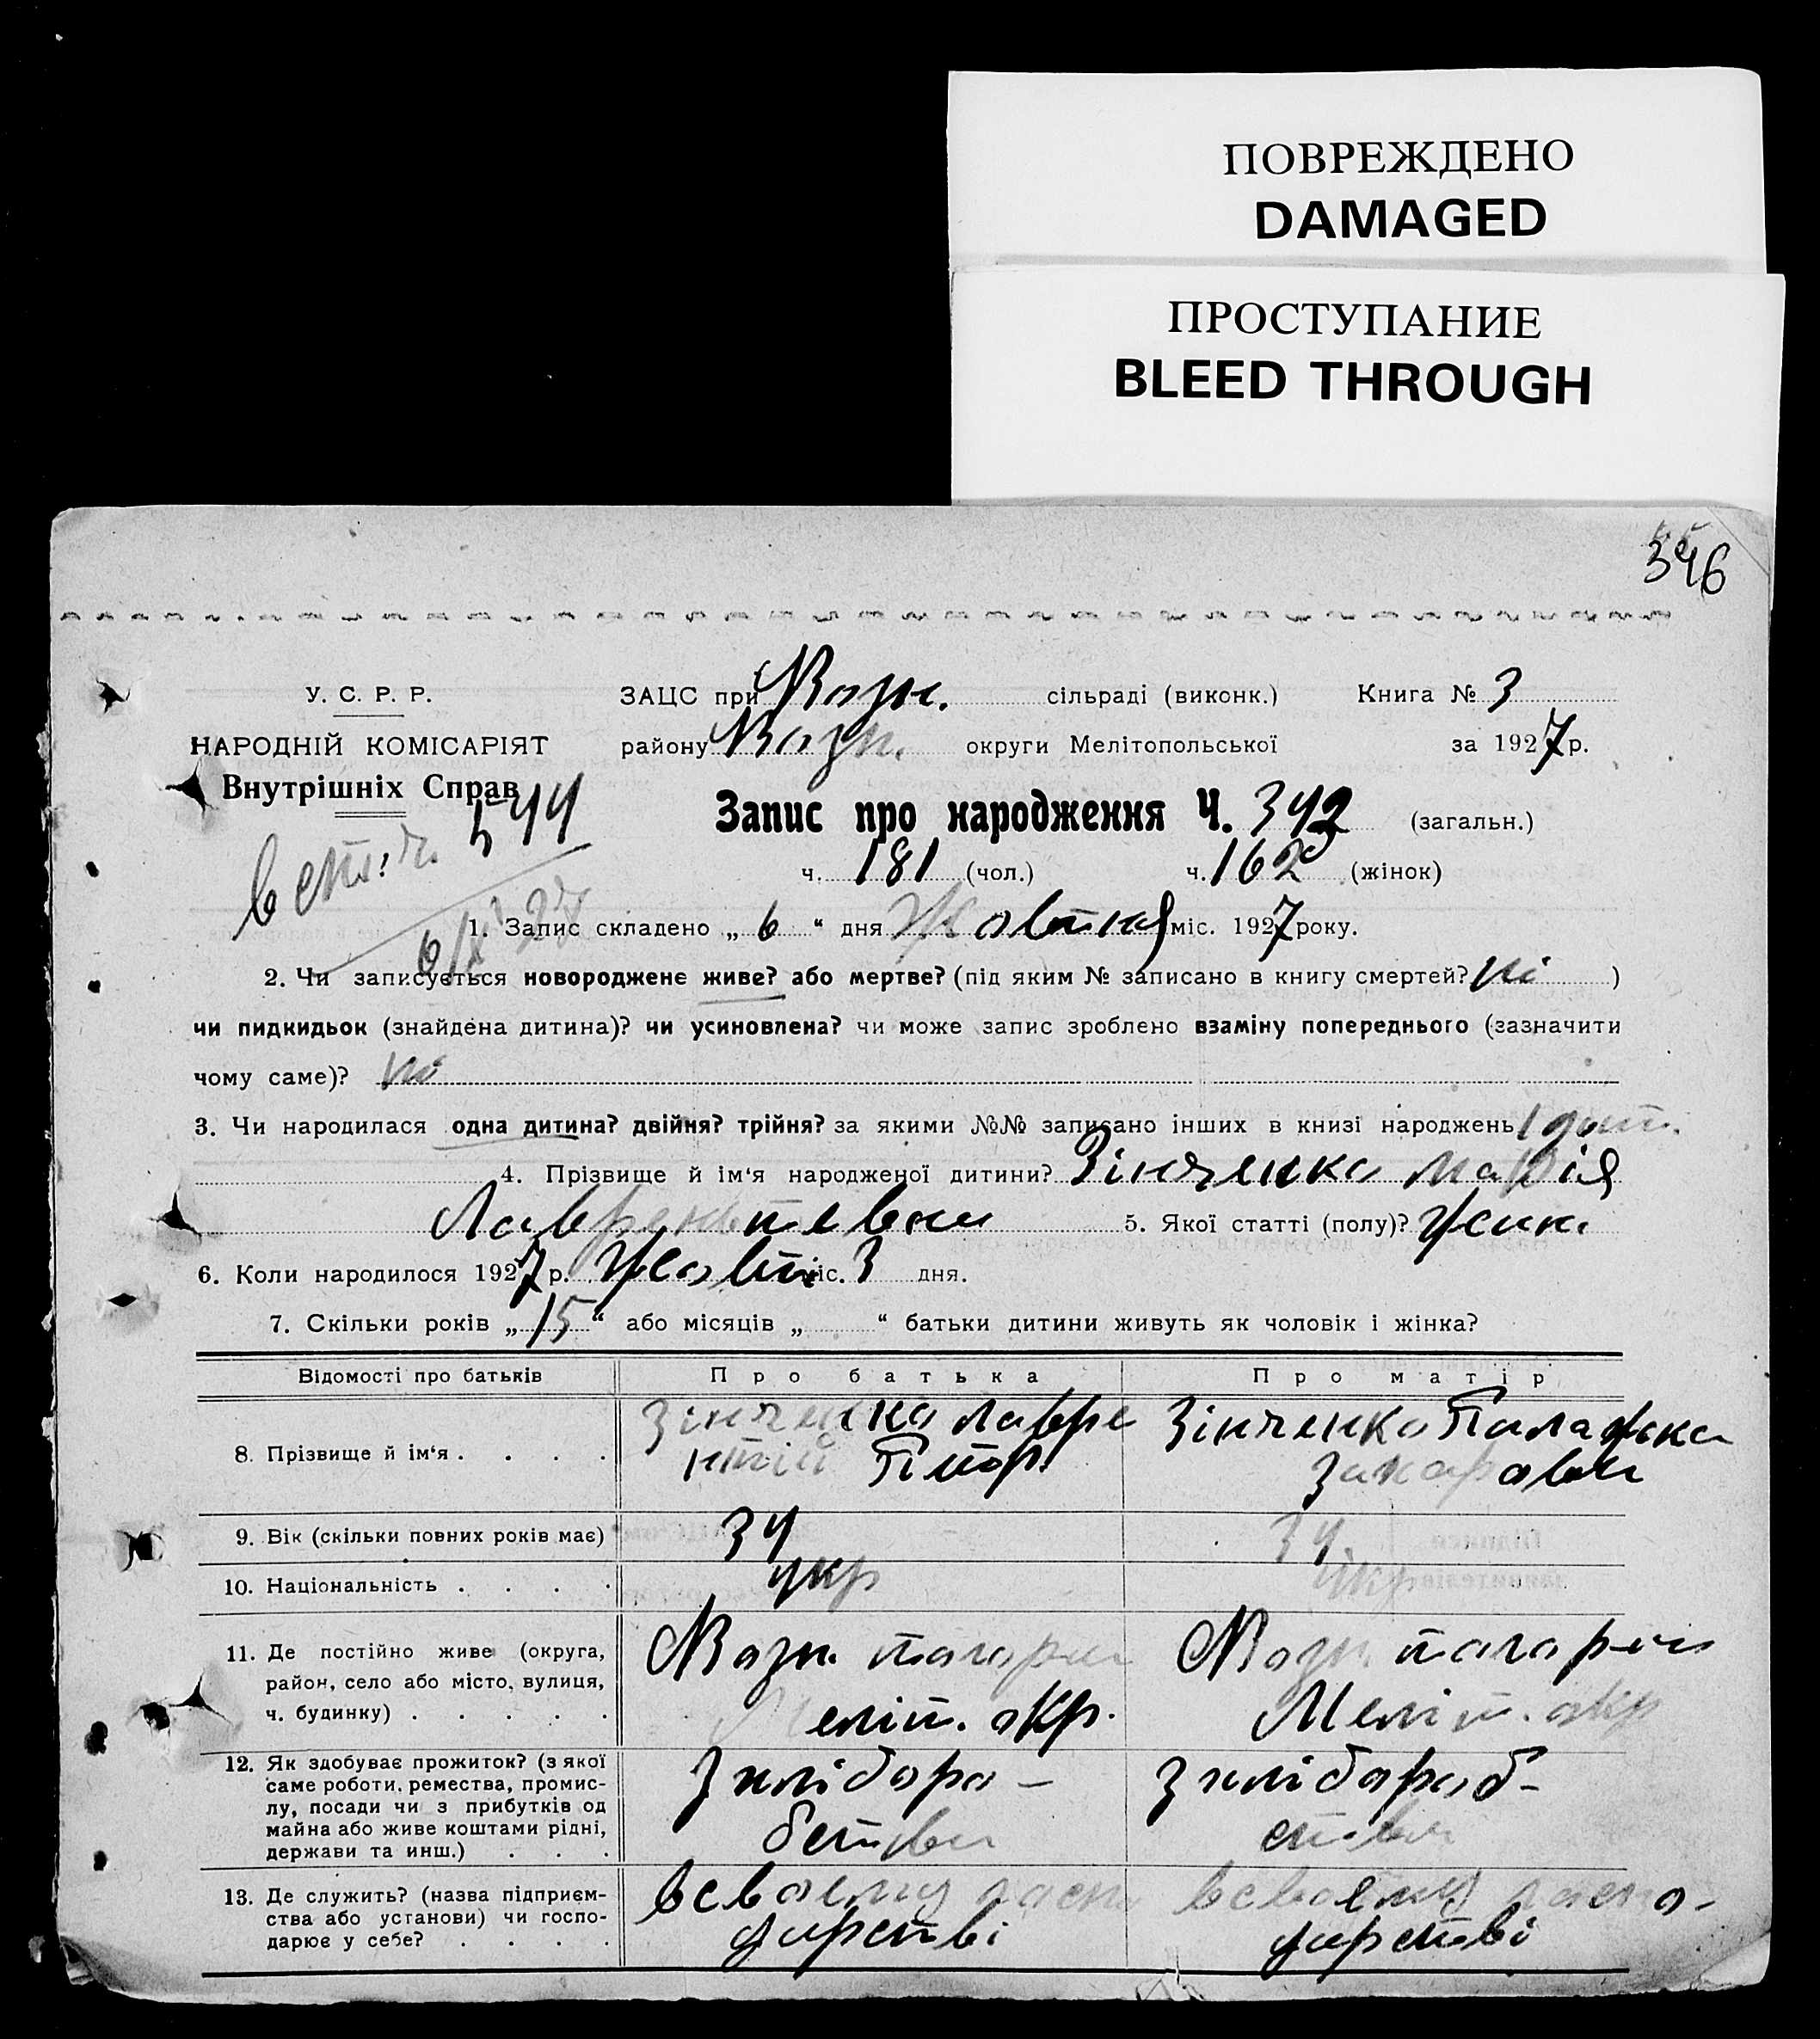 ПОВРЕЖДЕНО
DAMAGED
ПРОСТУПАНИЕ
BLEED THROUGH
346
У. С. Р. Р.
ЗАЦС при Возн. сільраді (виконк.) Книга № 3
НАРОДНІЙ КОМІСАРІЯТ
району Возн. округи Мелітопольської за 1927 р.
Внутрішніх Справ
544
Запис про народження Ч. 343 (загальн.)
ч. 181 (чол.) ч. 162 (жінок)
1. Запис складено „ 6 “ дня Жовтня міс. 1927 року.
2. Чи записується новороджене живе? або мертве? (під яким № записано в книгу смертей? ні )
чи пидкидьок (знайдена дитина)? чи усиновлена? чи може запис зроблено взаміну попереднього (зазначити
чому саме)? ні
3. Чи народилася одна дитина? двійня? трійня? за якими №№ записано інших в книзі народжень 1 дит.
4. Прізвище й ім‘я народженої дитини? Зінченко Марія
Лаврентьевна 5. Якої статті (полу)? жін.
6. Коли народилося 1927 р. Жовтн міс. 3 дня.
7. Скільки років „ 15 “ або місяців „ “ батьки дитини живуть як чоловік і жінка?
Відомості про батьків Про батька Про матір
8. Прізвище й ім‘я . . . . Зінченко Лавре Зінченко Палажка
нтій Захаровна
9. Вік (скільки повних років має) 34 34
10. Національність . . . . укр укр
11. Де постійно живе (округа,
район, село або місто, вулиця,
ч. будинку) . . . . .
Возн. Возн.
Меліт. окр. Меліт. окр
12. Як здобуває прожиток? (з якої
саме роботи, ремества, промис-
лу, посади чи з прибутків од
майна або живе коштами рідні,
держави та инш.) . . .
З хлібора- З хлібороб-
бства ства
13. Де служить? (назва підприєм-
ства або установи) чи госпо-
дарює у себе? . . . .
в своему госпо в своему госпо-
дарстві дарстві